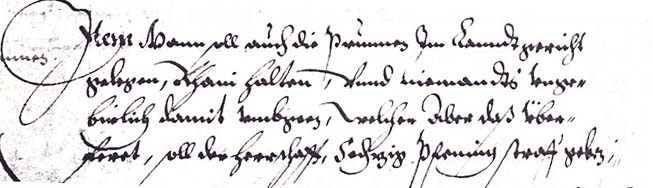 Item Mann soll auch die Prünnen Im Lanndtgericht
gelegen, Rhain halten, Vnnd niemandts vnge-
bürlich damit vmbgeen, welcher Aber daß Vber-
feret, soll der herrschafft, Sechzig Pfening straf geben